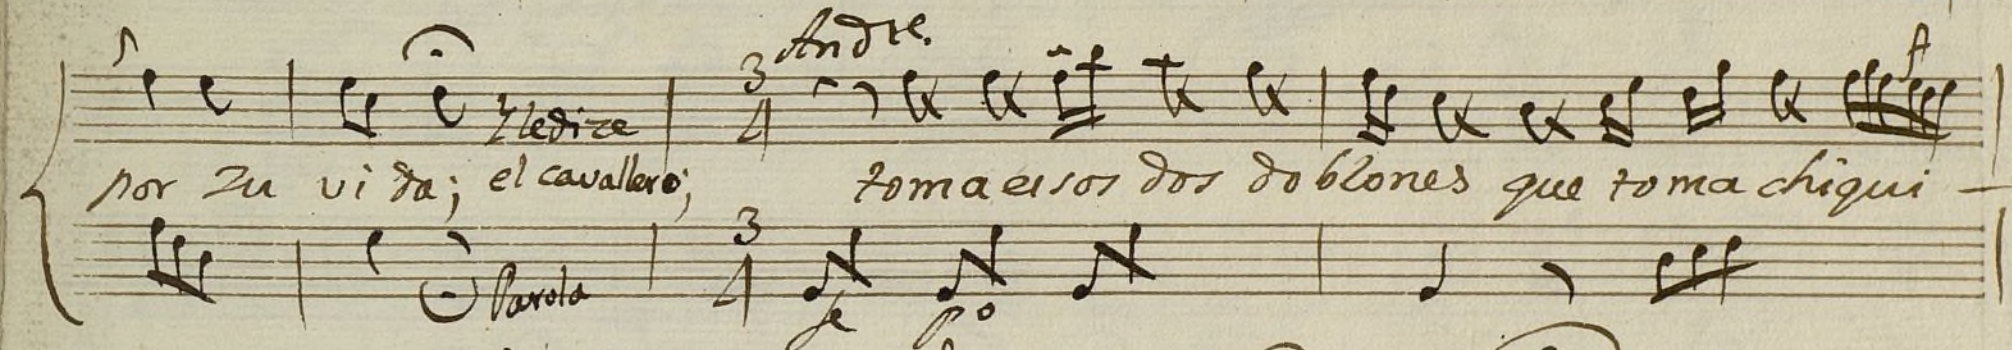 Andre.
3
4
Y le dize
por zu vida; el cavallero; toma eisos dos doblones que toma chiqui —
3
4
Parola
fe po